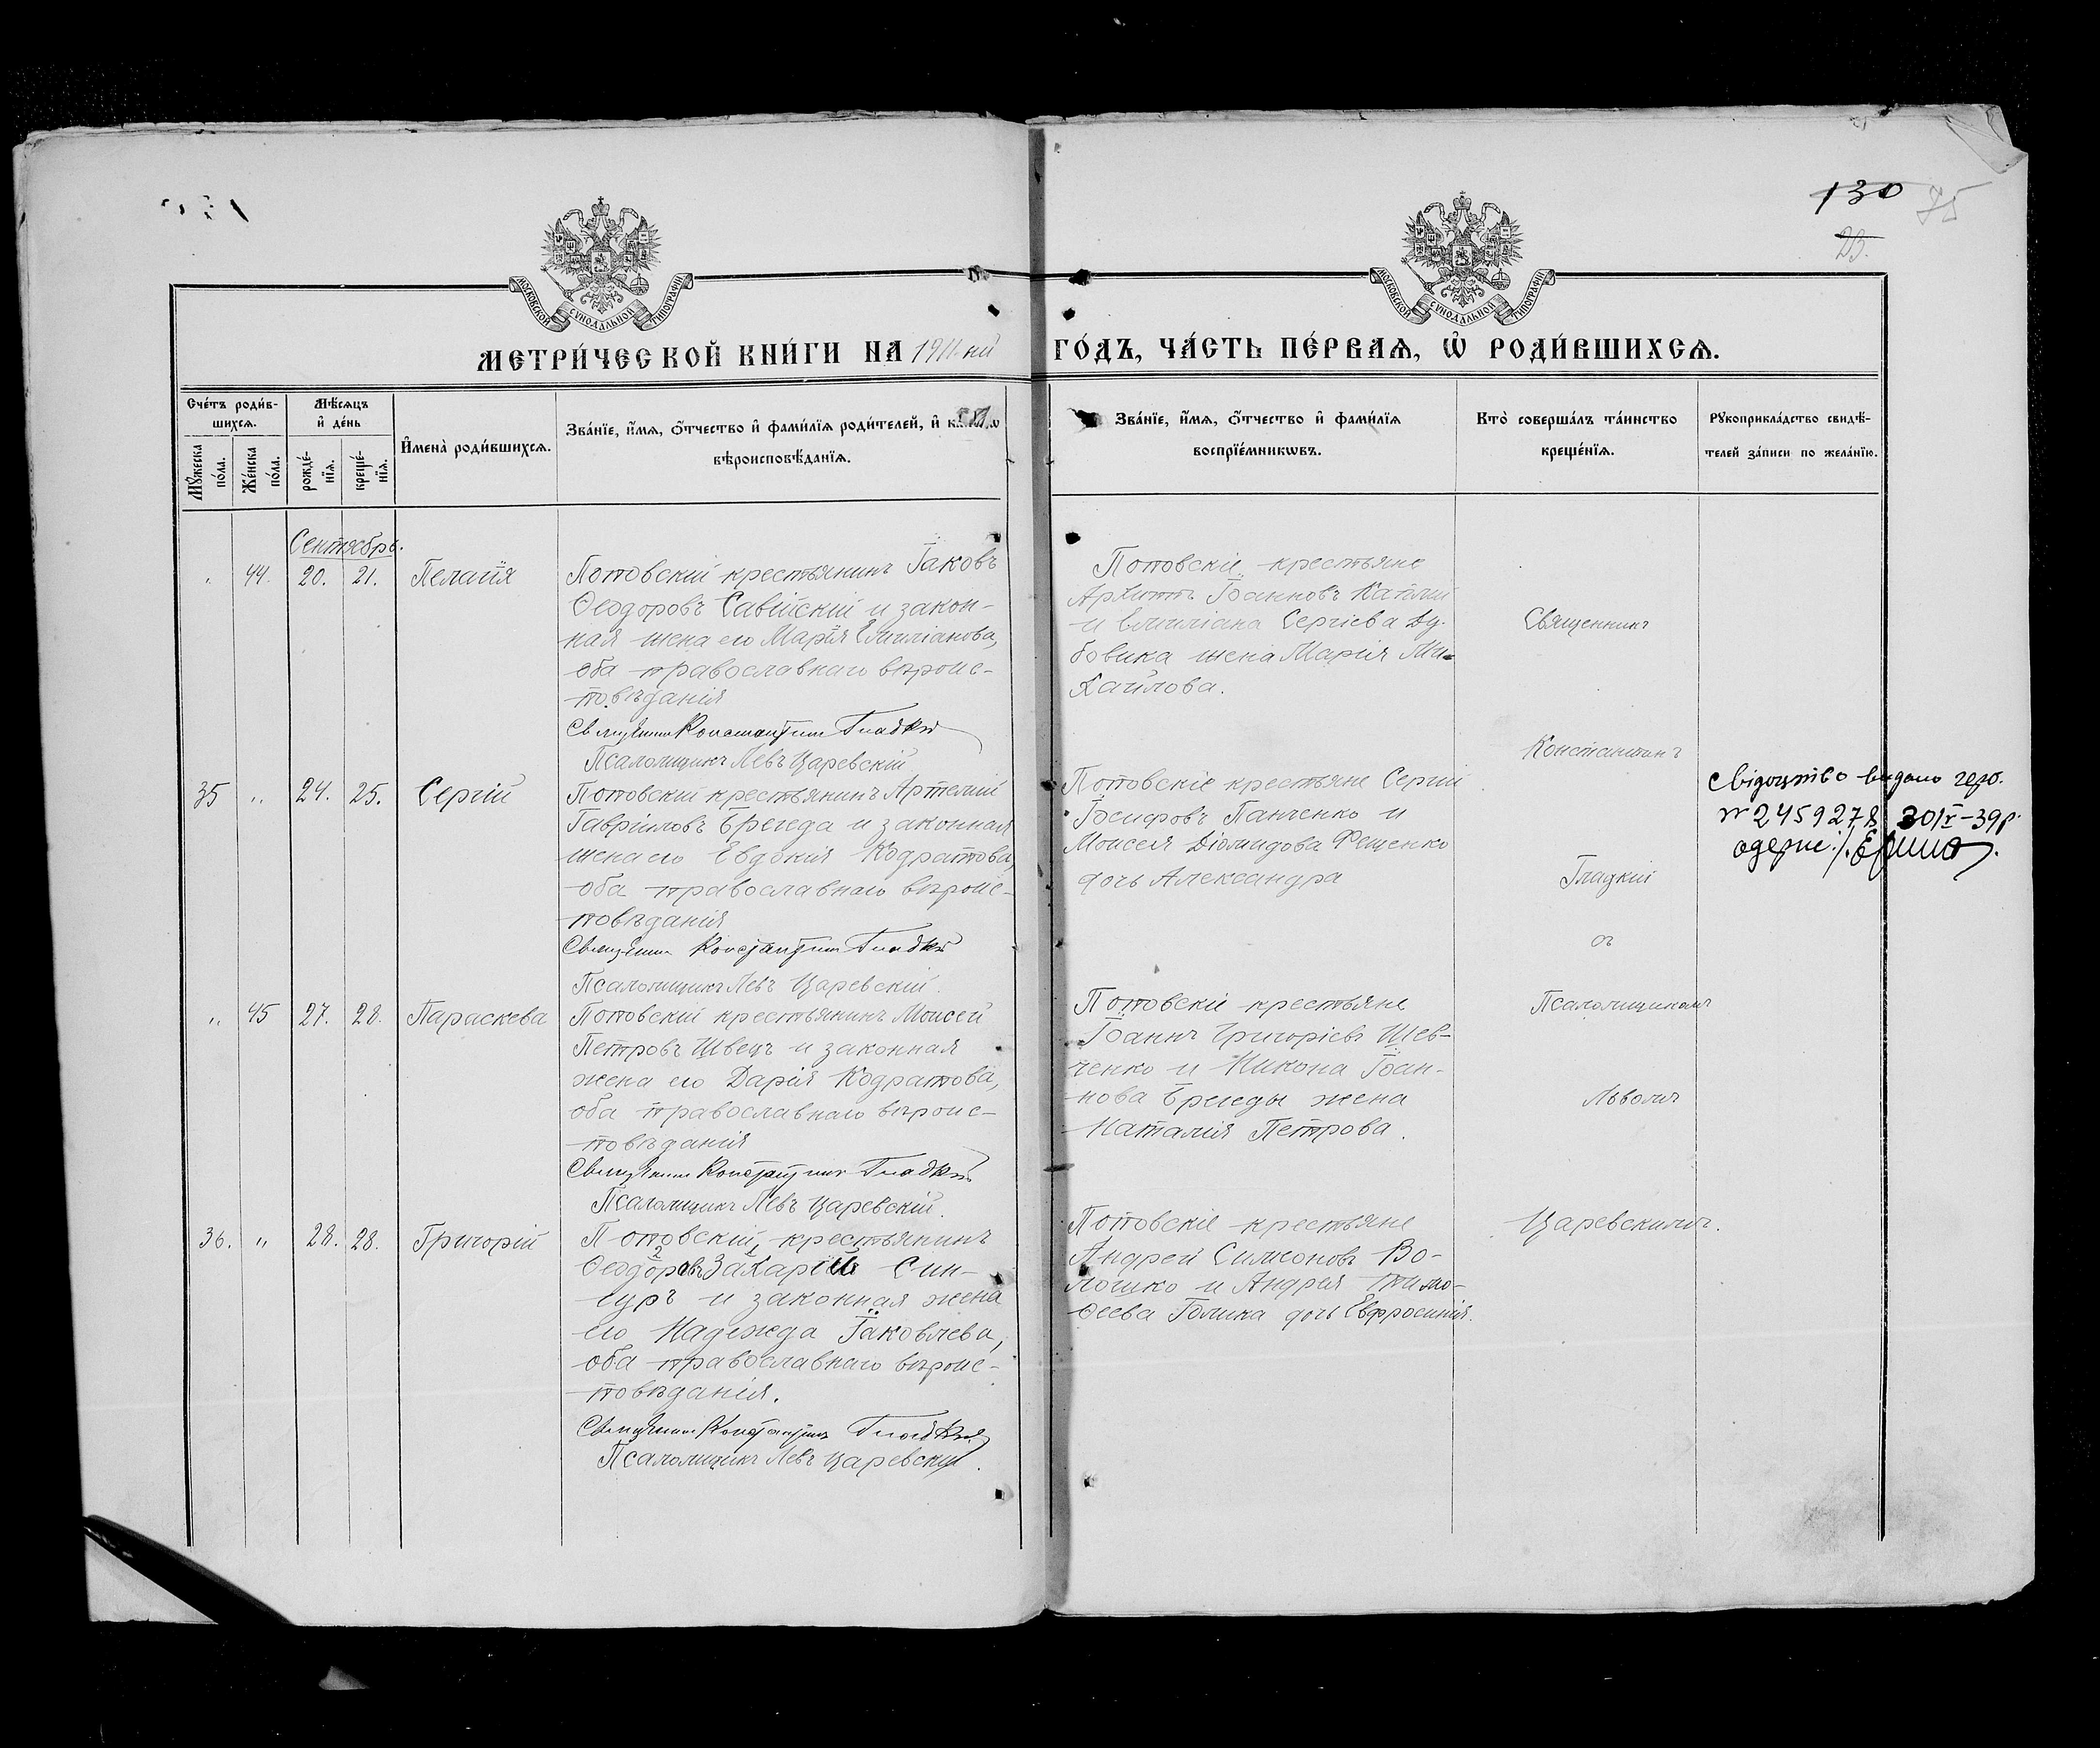 130 75
23.
МОСКОВСКОЙ СУНОДАЛЬНОЙ ТИПОГРАФІИ
МОСКОВСКОЙ СУНОДАЛЬНОЙ ТИПОГРАФІИ
МЕТРИ́ЧЕСКОЙ КНИ́ГИ НА 1911-ый ГО́ДЪ, ЧА́СТЬ ПЕ́РВАѦ, Ѡ҆ РОДИ́ВШИХСѦ.
Сче́тъ роди́в-
шихсѧ.
Мꙋ́жеска по́ла.
Же́нска по́ла.
Мѣ́сѧцъ
и҆ де́нь
рожде́-
нїѧ.
креще́-
нїѧ.
И҆мена̀ роди́вшихсѧ.
Зва́нїе, и҆́мѧ, ѻ҆́тчество и҆ фами́лїѧ роди́телей, и҆
вѣроисповѣ́данїѧ.
Зва́нїе, и҆́мѧ, ѻ҆́тчество и҆ фами́лїѧ
воспрїе́мникѡвъ.
Кто̀ соверша́лъ та́инство
креще́нїѧ.
Рꙋкоприкла́дство свидѣ́-
телей за́писи по жела́нїю.
Сентябрь.
" 44. 20. 21. Пелагія
Поповскій крестьянинъ Іаковъ
Ѳеодоровъ Савійскій и закон-
ная жена его Марія Емиліанова,
оба православнаго вѣроис-
повѣданія
Священникъ Константинъ Гладкій
Псаломщикъ Левъ Царевскій
Поповскіе крестьяне
Іоанновъ
и Емиліана Сергіева Ду-
бовика жена Марія Ми-
хайлова.
35 " 24. 25. Сергій
Поповскій крестьянинъ Артемій
Гавріиловъ Брегеда и законная
жена его Евдокія Кодратова,
оба православнаго вѣроис-
повѣданія
Священникъ Константинъ Гладкій
Псаломщикъ Левъ Царевскій.
Поповскіе крестьяне Сергій
Іосифовъ Панченко и
Моисея Діомидова Фещенко
дочь Александра
Свідоцтво видано
№ 2459278 30/ -39р.
" 45 27. 28. Параскева
Поповскій крестьянинъ Моисей
Петровъ Швецъ и законная
жена его Дарія Кодратова,
оба православнаго вѣроис-
повѣданія
Священникъ Константинъ Гладкій
Псаломщикъ Левъ Царевскій.
Поповскіе крестьяне
Іоаннъ Григоріевъ Шев-
ченко и Никона Іоан-
нова Брегеды жена
Наталія Петрова.
36. " 28. 28. Григорій
Поповскій крестьянинъ
Ѳеодоровъ Захарій Син-
гуръ и законная жена
его Надежда Іаковлева,
оба православнаго вѣроис-
повѣданія.
Священникъ Константинъ Гладкій
Псаломщикъ Левъ Царевскій.
Поповскіе крестьяне
Андрей Симеоновъ Во-
лошко и Андрея Тимо-
ѳеева Голика дочь Евфросинія.
Священникъ
Константинъ
Гладкій
съ
Псаломщикомъ
Львомъ
Царевскимъ.